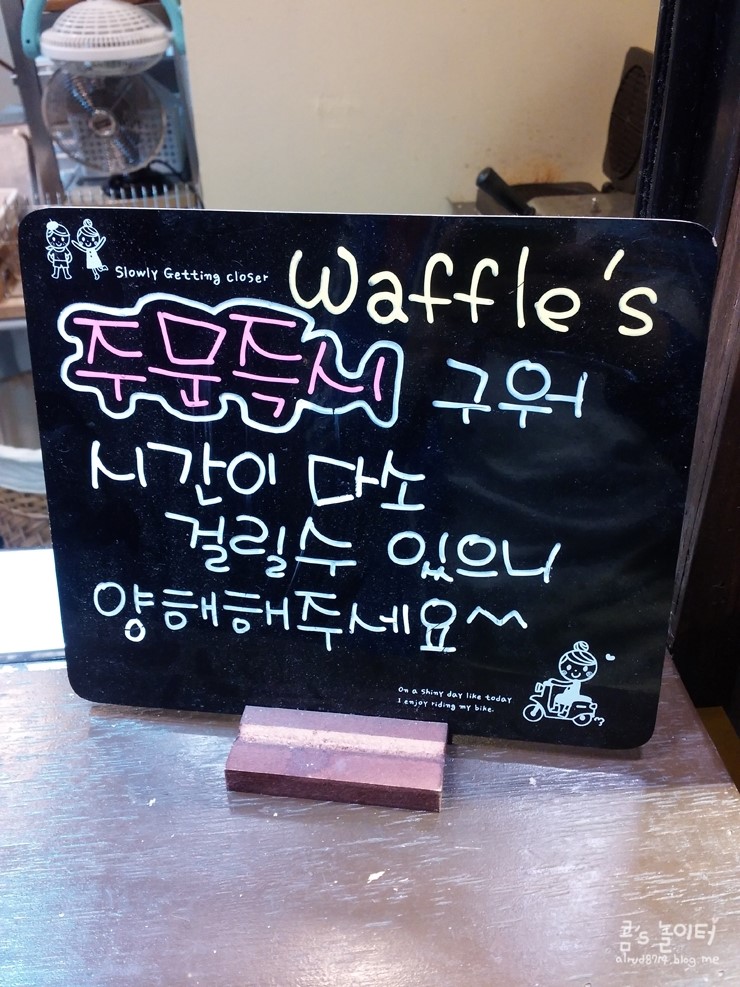 Slowly Getting closer
Waffle's
주문즉시 구워
시간이 다소
걸릴수 있으니
양해해주세요^^
On a shiny day like today
I enjoy riding my bike.
콤's 놀이터
alrud8214.blog.me